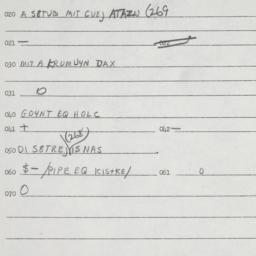 020 A SETUDI MIT GUEJ ATAZN (269
021 —
030 MIT A KRUMUYN DAX
031 O
040 GOYNT EQ HOLC
041 + 042 —
(268)
050 DI SETREJ IS NAS
060 $- /PIPE EQ KISTKE/ 061 O
070 O